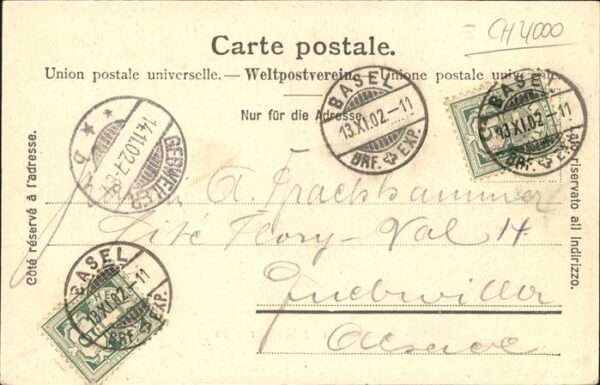 CH 4000
Carte postale.
Union postale universelle. — Weltpostverein. — Unione postale universale.
Nur für die Adresse.
Côté réservé à l'adresse.
riservato all Indirizzo.
BASEL
13.XI.02.-11
BRF. EXP.
BASEL
13.XI.02.-11
BRF. EXP.
14.11.02.7-8
GEBWEILER
A. Frachhammer
Cité Flory-Val 14
Guebwiller
Alsace
BASEL
13.XI.02.-11
BRF. EXP.
HE